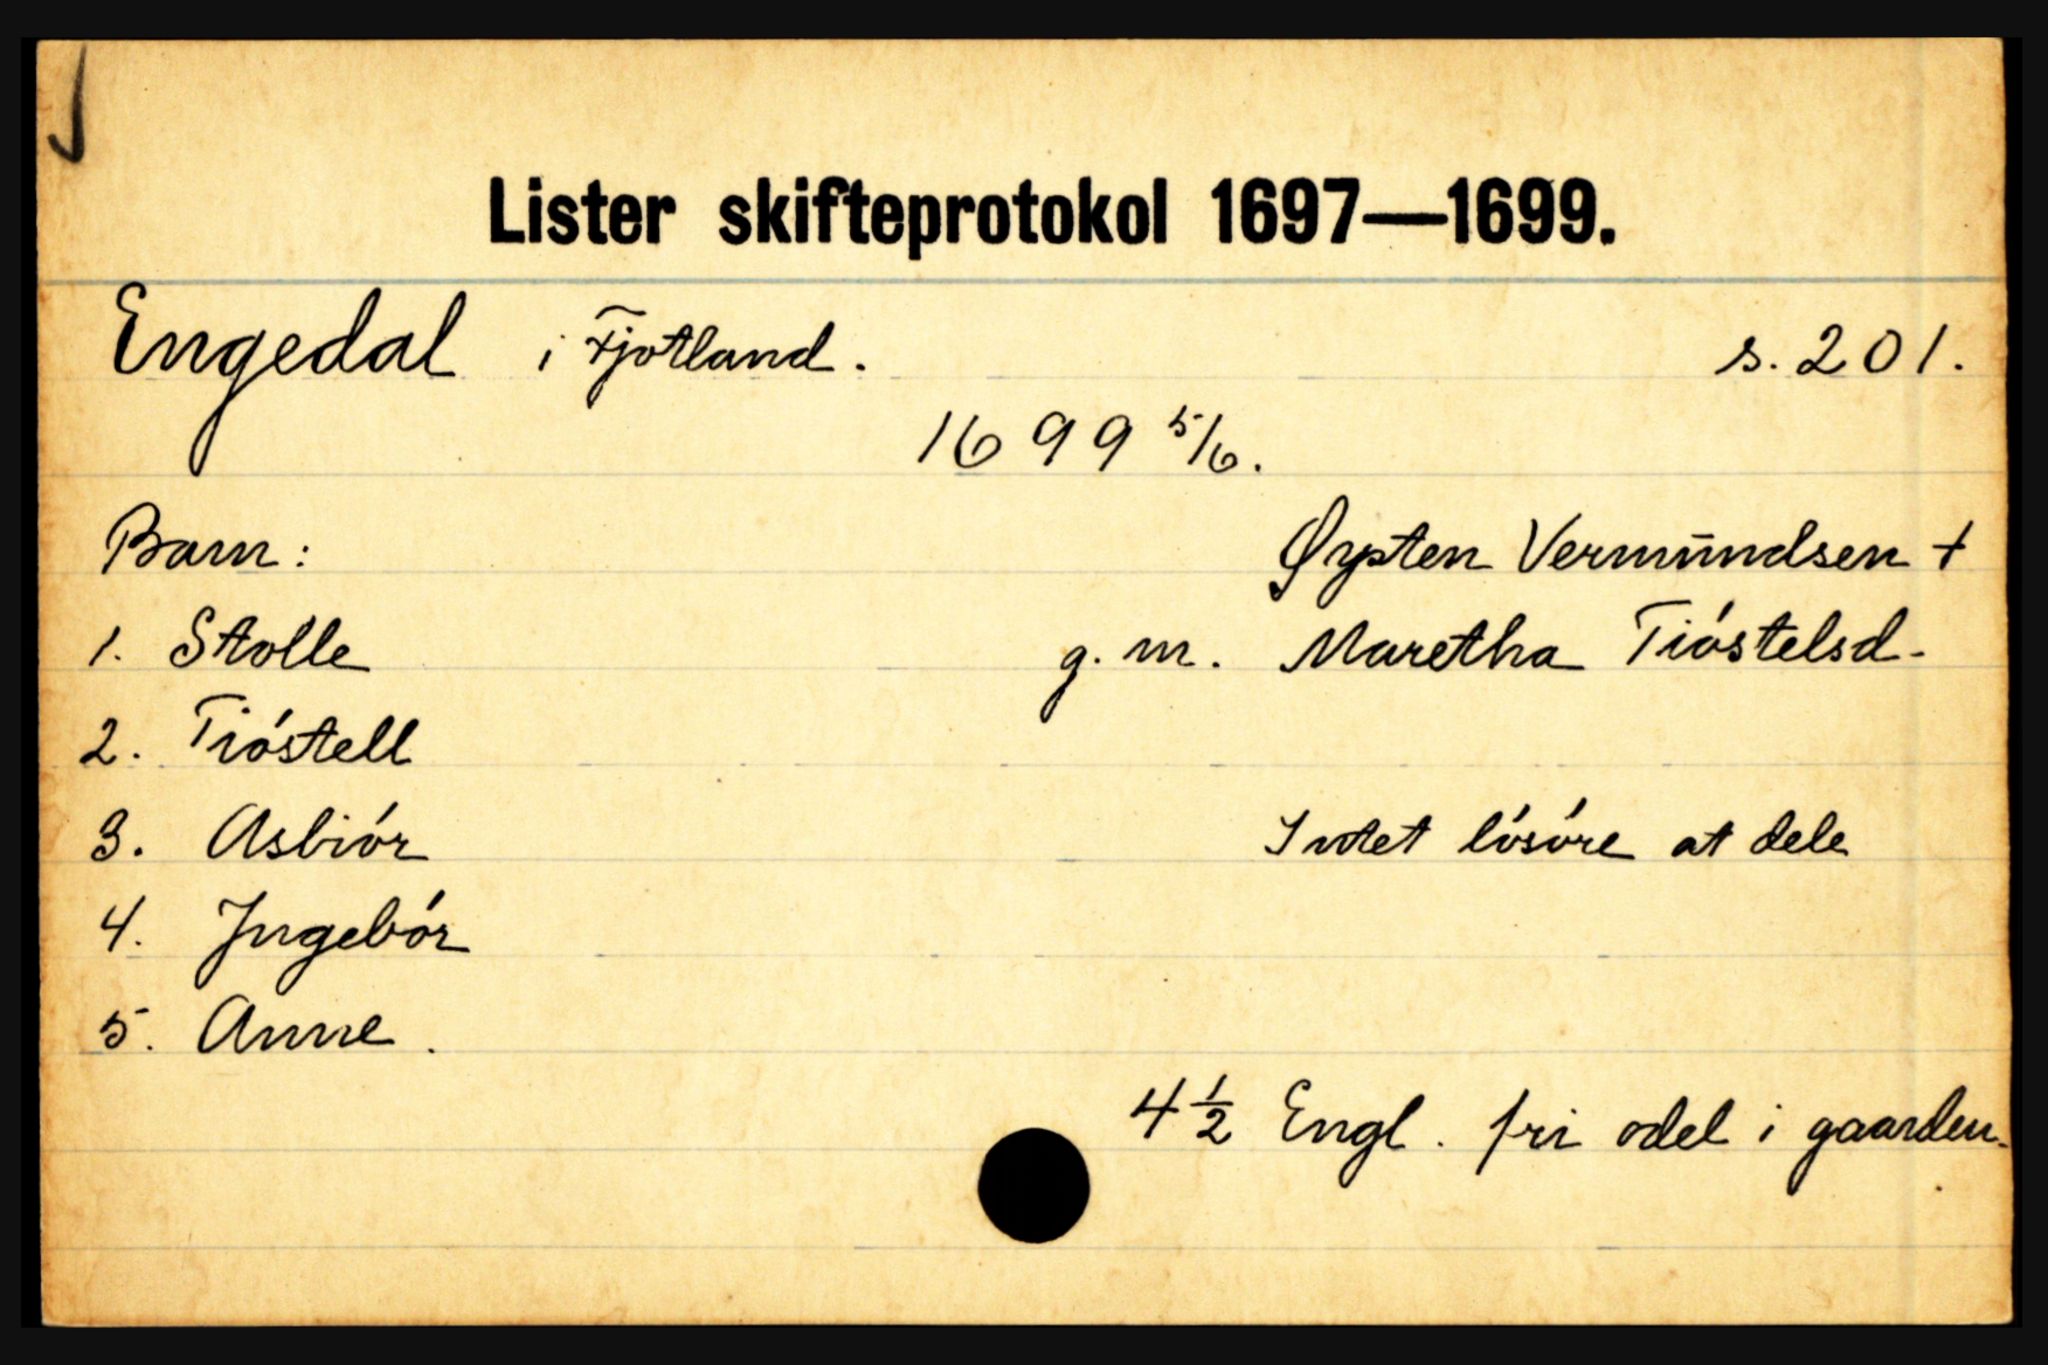 Lister skifteprotokol 1697—1699.
Engedal i Fjotland. s. 201.
1699 5/6.
Barn: Øysten Vermundsen +
1. Stolle g. m. Maretha Tióstelsd.
2. Tióstell
3. Asbiór Intet lósóre at dele
4. Ingebór
5. Anne.
4 1/2 Engl. fri odel i gaarden.